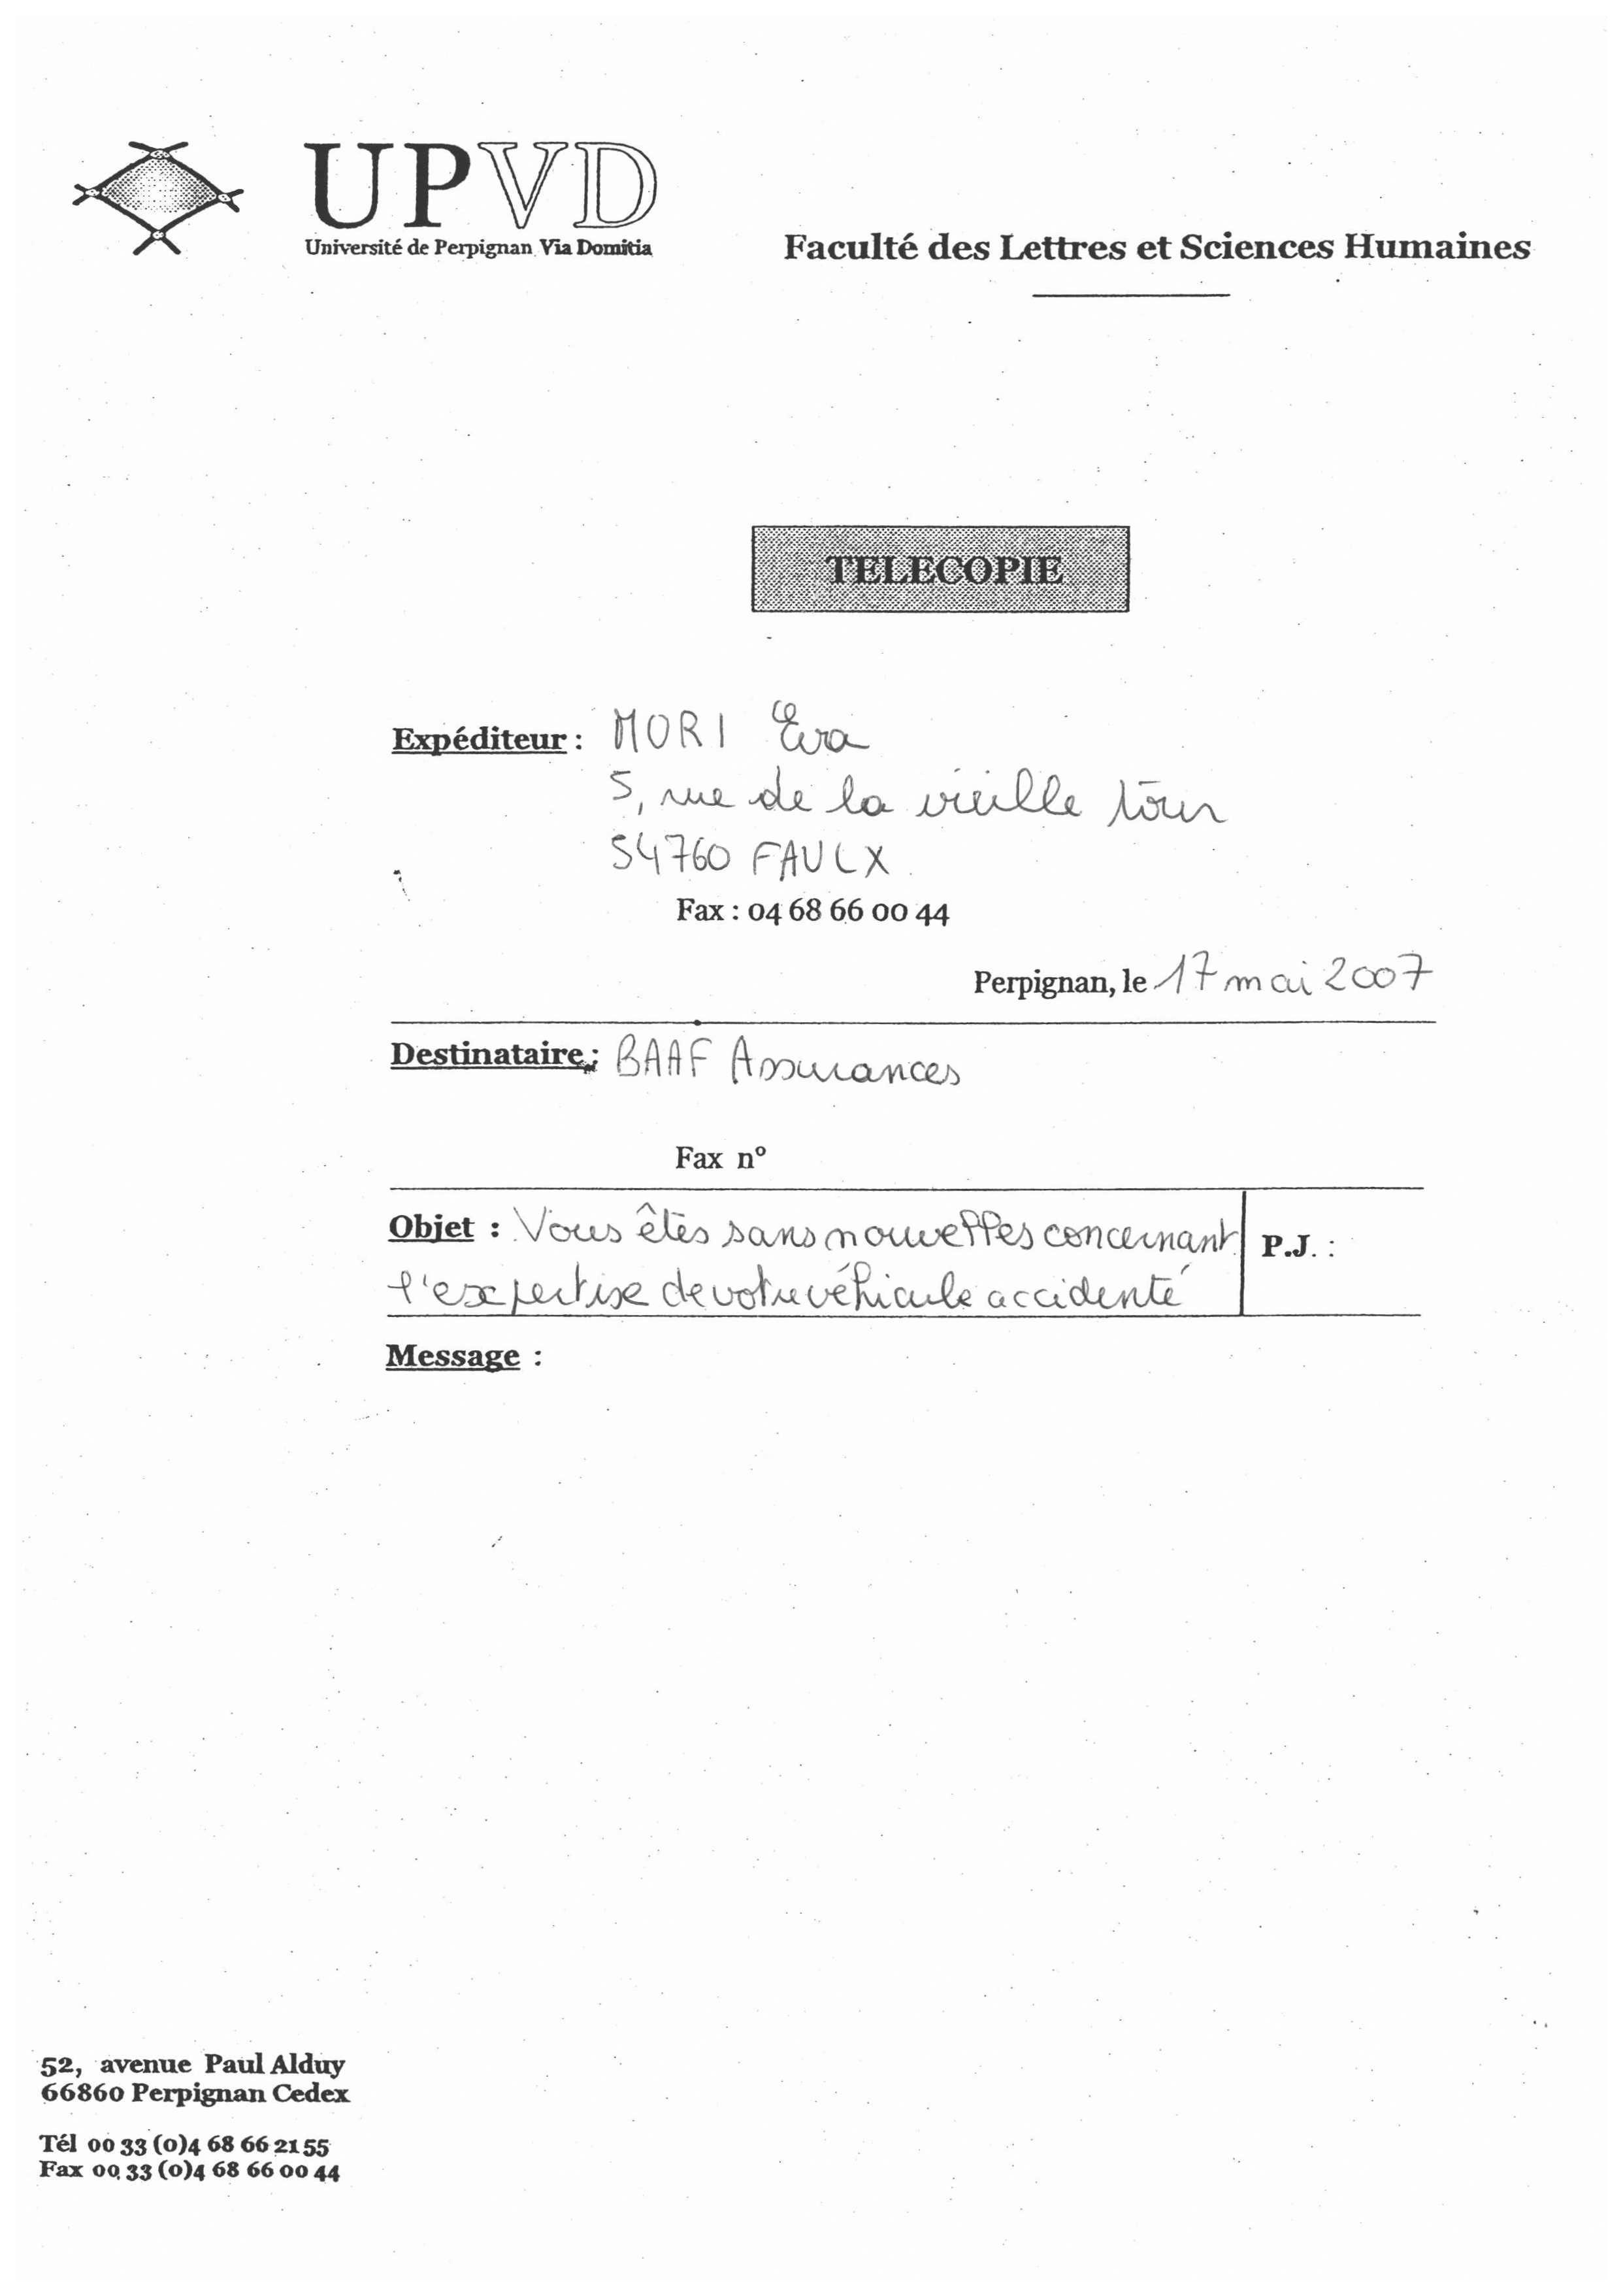 UPVD
Université de Perpignan Via Domitia
Faculté des Lettres et Sciences Humaines
TELECOPIE
Expéditeur : MORI Eva
5, rue de la vieille tour
54760 FAULX
Fax : 04 68 66 00 44
Perpignan, le 17 mai 2007
Destinataire : BAAF Assurances
Fax n°
Objet : Vous êtes sans nouvelles concernant
l'expertise de votre véhicule accidenté
P.J. :
Message :
52, avenue Paul Alduy
66860 Perpignan Cedex
Tél 00 33 (0)4 68 66 21 55
Fax 00 33 (0)4 68 66 00 44